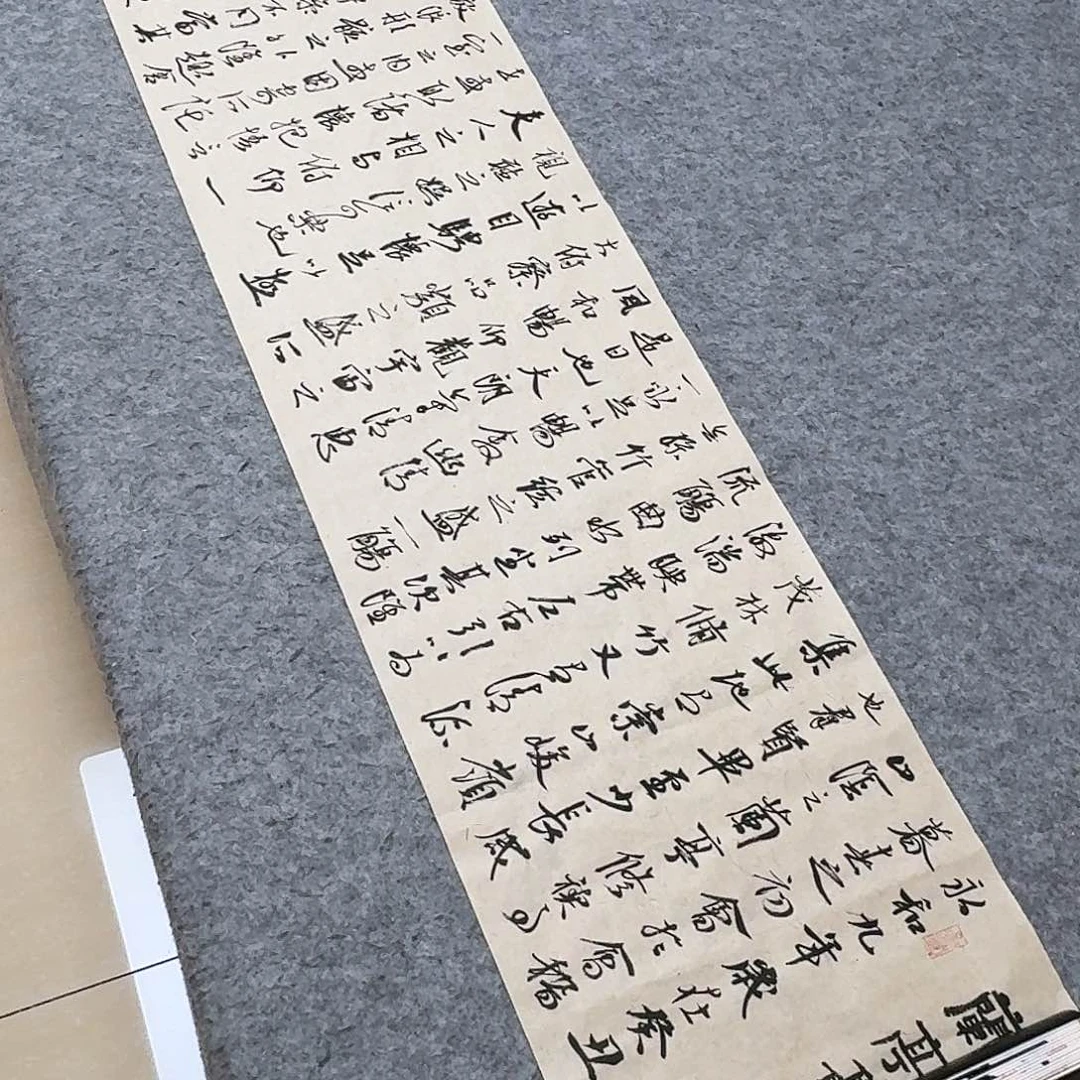 蘭亭
永和九年歲在癸丑
暮春之初會於會稽
山陰之蘭亭修禊事
也群賢畢至少長咸
集此地有崇山峻領
茂林修竹又有清流
激湍映帶左右引以為
流觴曲水列坐其次
絲竹管弦之盛一觴
一詠足以暢敘幽情
是日也天朗氣清惠
風和暢仰觀宇宙之
大俯察品類之盛所
以遊目騁懷足以極
視聽之娛信可樂也
夫人之相與俯仰一
取諸懷抱悟言
一室之內因寄所
浪形骸之外雖趣